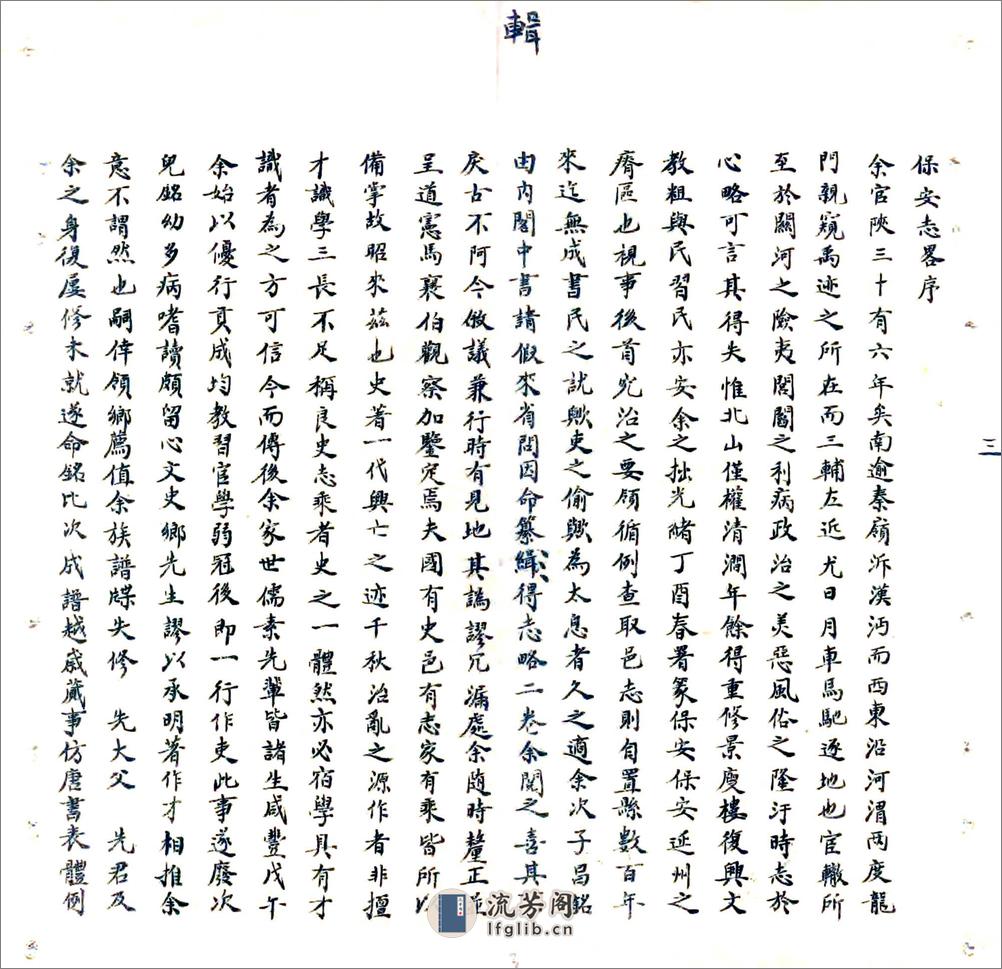 輯
三
保安志畧序
余官陝三十有六年矣南逾秦嶺泝漢沔而西東沿河渭兩度龍
門親窺禹迹之所在而三輔左近尤日月車馬馳逐地也宦轍所
至於關河之險夷閭閻之利病政治之美惡風俗之隆汙時志於
心略可言其得失惟北山僅權清澗年餘得重修景慶樓復興文
教粗與民習民亦安余之拙光緒丁酉春署篆保安保安延州之
瘠區也視事後首究治之要領循例查取邑志則自置縣數百年
來迄無成書民之訧歟吏之偷歟為太息者久之適余次子昌銘
由內閣中書請假來省問因命纂緝得志略二卷余閱之喜其
戾古不阿今倣議兼行時有見地其譌謬冗漏處余随時釐正並
呈道憲馬襄伯觀察加鑒定焉夫國有史邑有志家有乘皆所以
備掌故昭來茲也史著一代興亡之迹千秋治亂之源作者非擅
才識學三長不足稱良史志乘者史之一體然亦必宿學具有才
識者為之方可信今而傳後余家世儒素先輩皆諸生咸豐戊午
余始以優行貢成均教習官學弱冠後即一行作吏此事遂廢次
兒銘幼多病嗜讀頗留心文史鄉先生謬以承明著作才相推余
意不謂然也嗣倖領鄉薦值余族譜牒失修 先大父 先君及
余之身復屢修未就遂命銘比次成譜越歲蕆事仿唐書表體例
流芳阁
lfglib.cn